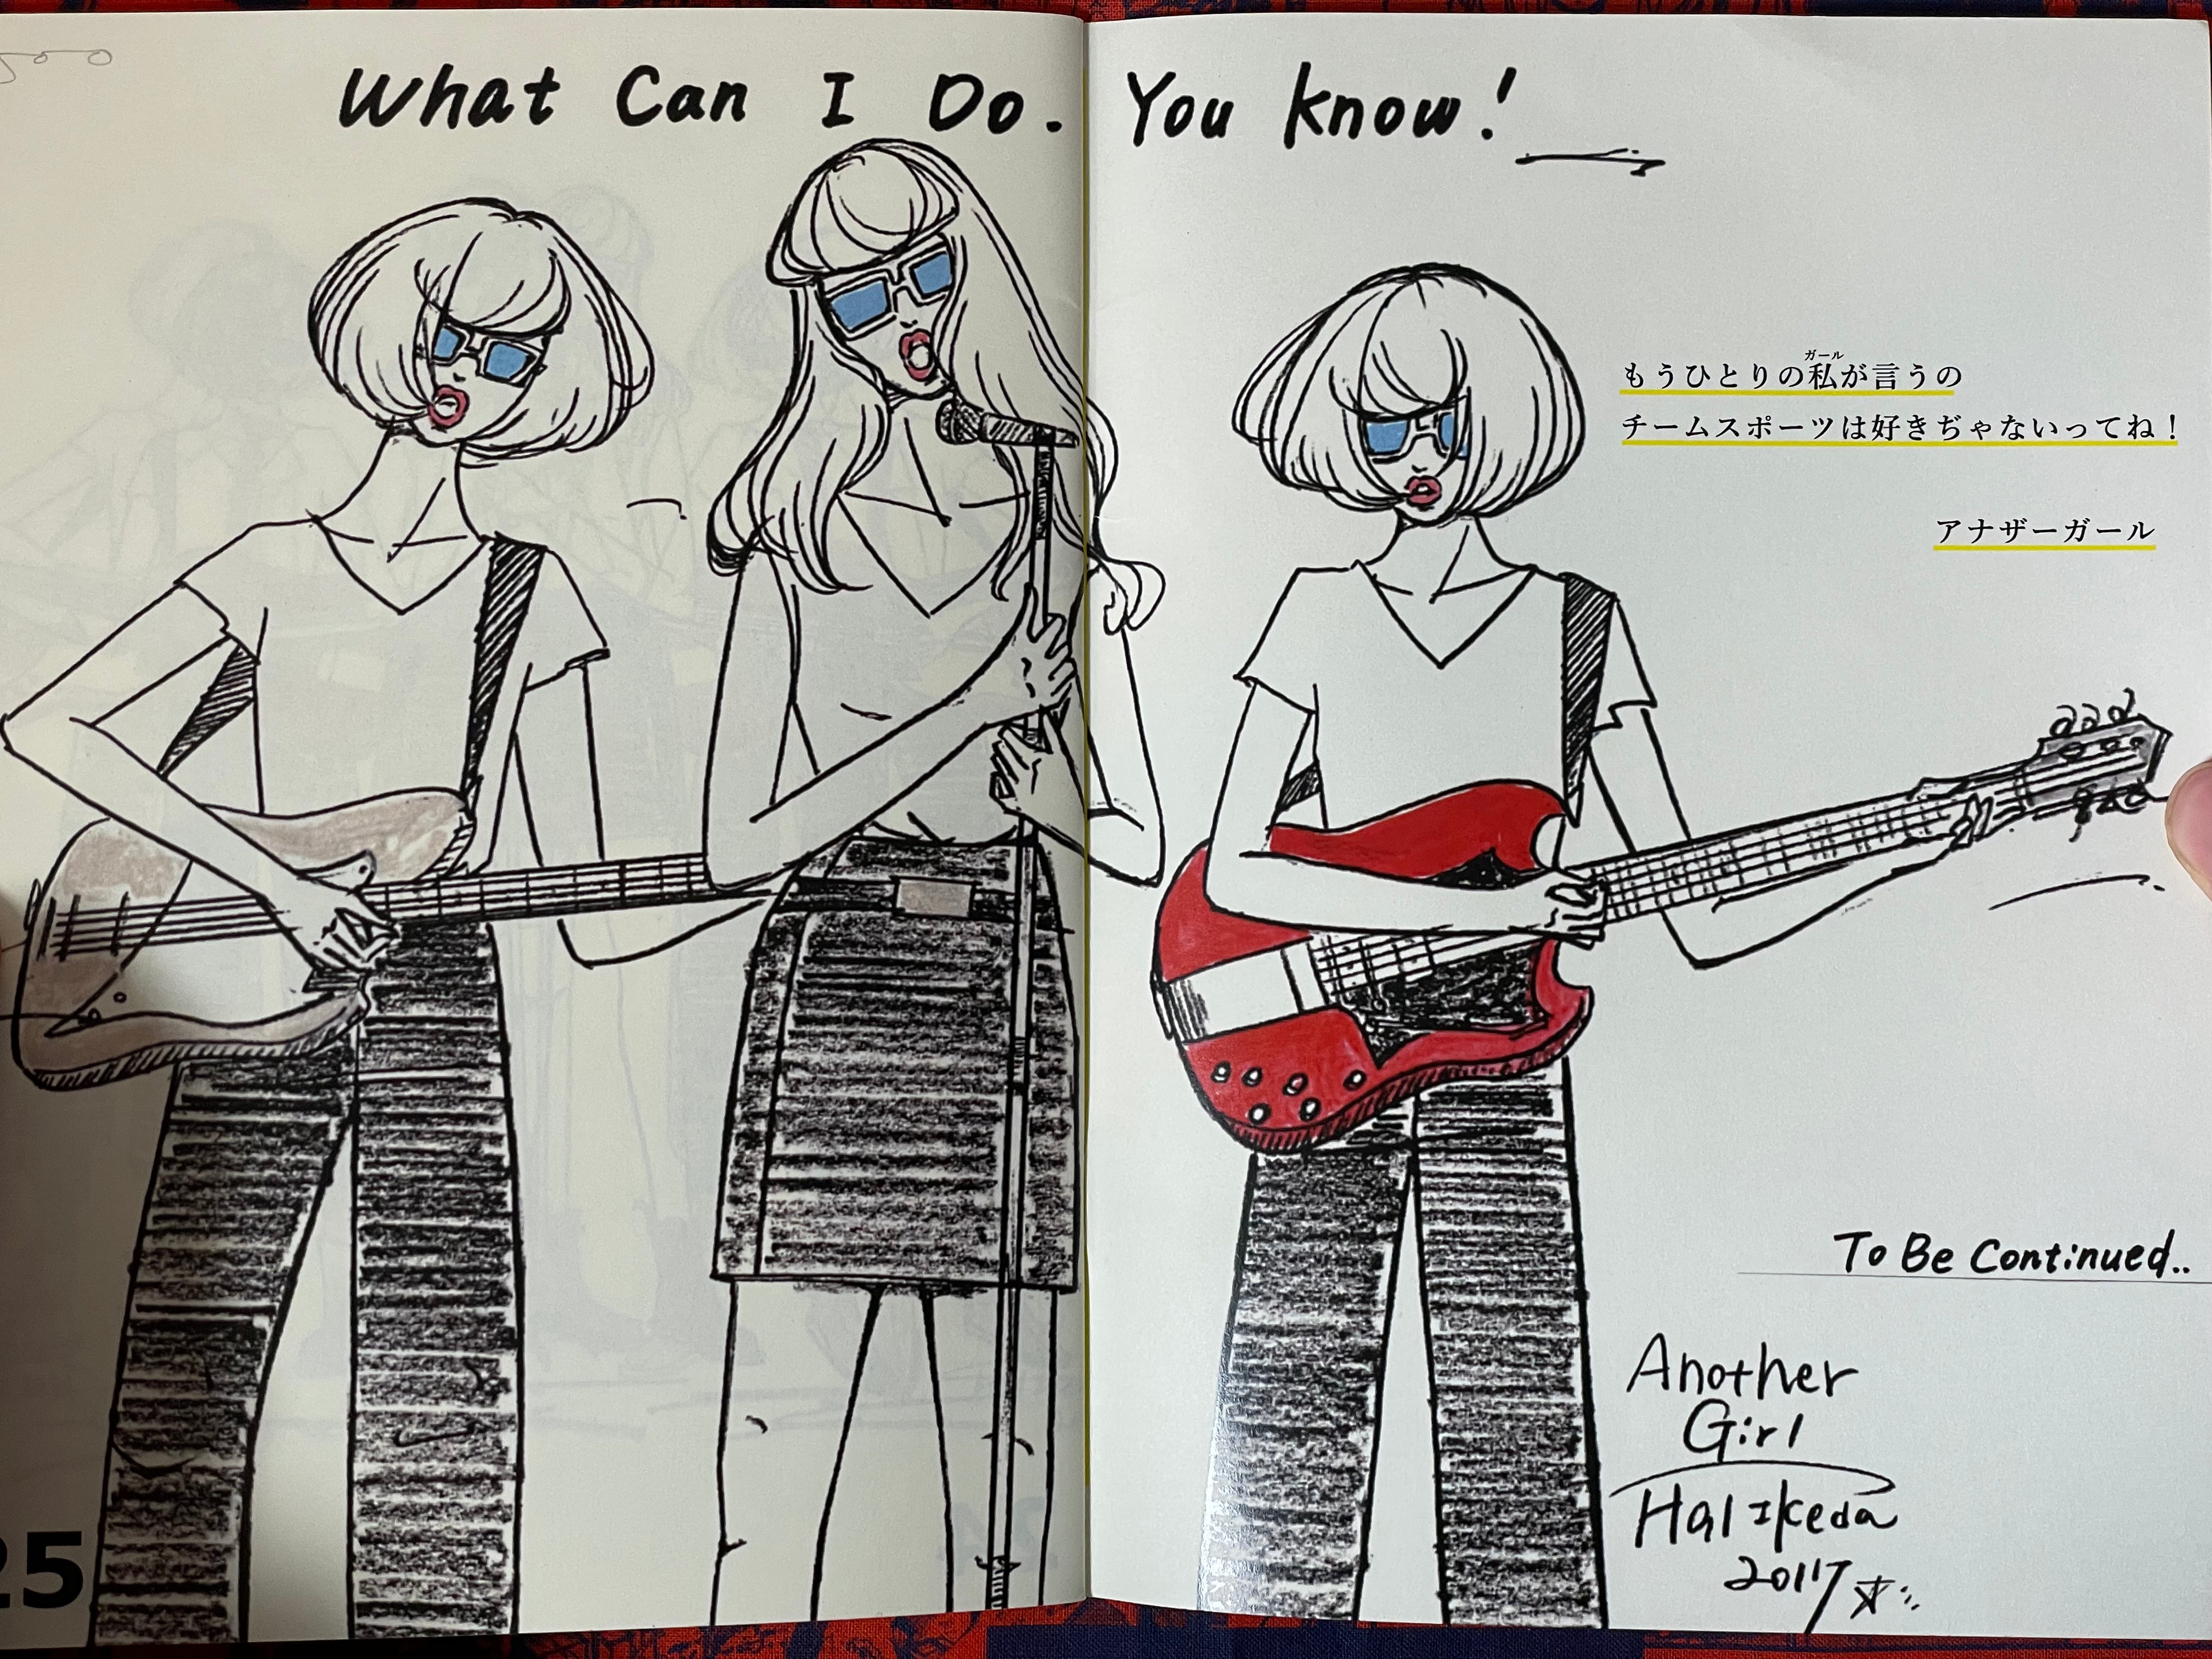 What Can I Do. You know!
もうひとりの私が言うの
ガール
チームスポーツは好きぢゃないってね！
アナザーガール
To Be Continued..
Another
Girl
Hal Ikeda
2017
25